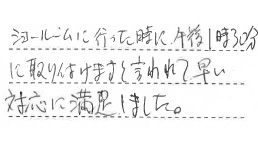 ショールームに行った時に、午後1時30分
に取り付けますと言われて早い
対応に満足しました。